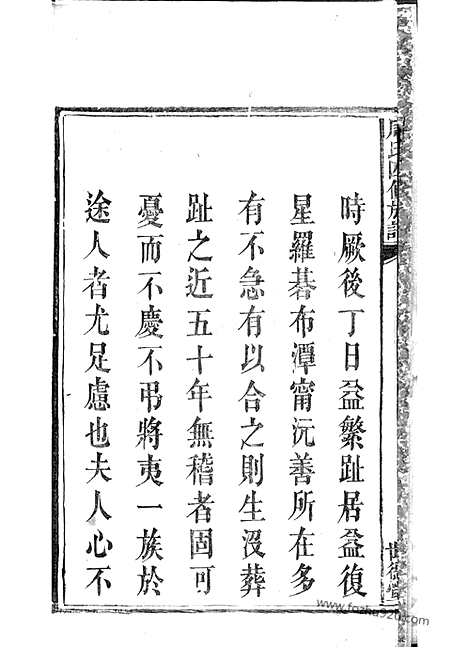 氏四修族譜
世德堂
時厥後丁日益繁趾居益復
星羅碁布潭甯沅善所在多
有不急有以合之則生沒葬
趾之近五十年無稽者固可
憂而不慶不弔將夷一族於
途人者尤足慮也夫人心不
www.fozhu920.com